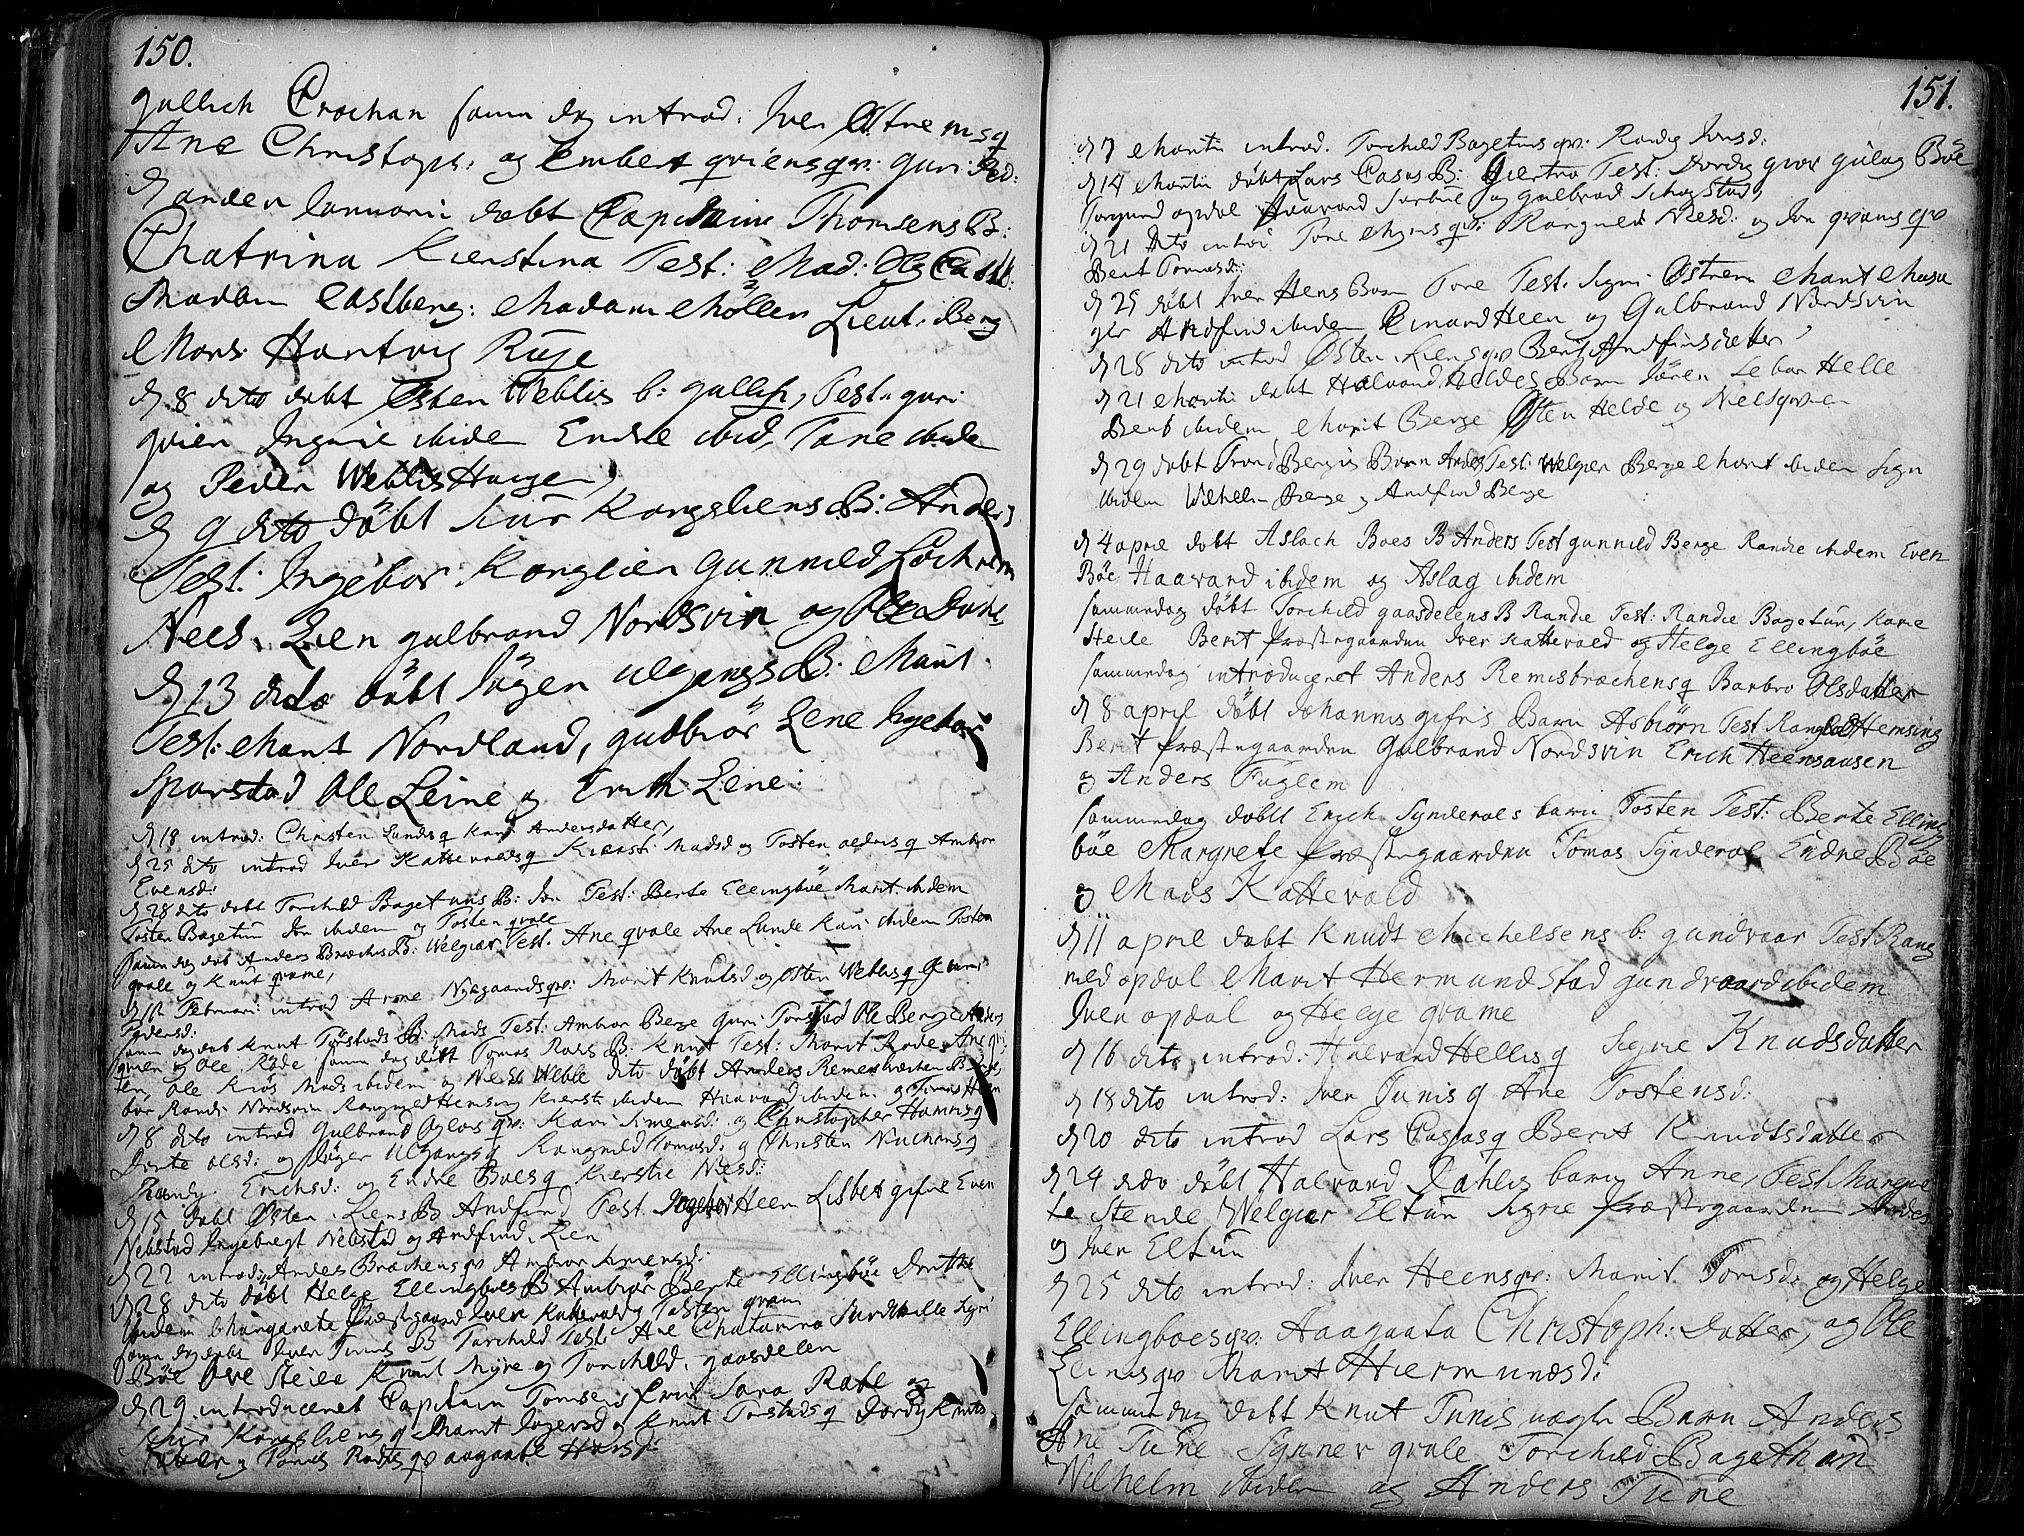 150.
gullich Crøchan samme dag introd: Iver Østrems q
Ane Christoph: og Embert qviens qv: guri Ped:
d anden Januarii døbt Capitaine Thomsens B:
Chatrina Kierstina Test: Mad:
Madam Castberg: Madame Møller Lieut: Berg
Mons: Hartvig Ruge
d 8 dito døbt Østen Weblis b: gullich, Test: guri
qvien Ingrie ibidem Endre ibid, Tone ibidem
og Peder Weblis Haugen,
d 9 dito døbt Siur Kongsliens B: Anders
Test: Ingebor Kongslien Gunnild
Neels Lien gulbrand Nordsvin og Ole Dahl
d 13 dito døbt Jøgen Ulgangs B: Marit
Test: Marit Nordland, gudbiør Lene Ingebor
Sparstad Ole Leine og Erich Lene:
d 18 introd: Christen Lunds q Kari Andersdatter,
d 25 dito introd Iver Kattevolds q Kiersti Madsd og Tosten q Ambior
Evensd:
d 28 dito døbt Torchild Bagetuns B: Jon Test: Berte Ellingbøe Marit ibidem
Tosten Bagetun Jon ibidem og Tosten qvale
samme dag døb Anders Bræchis B: Welgier Test: Ane qvale Ane Lunde Kari ibidem Tosten
qvale og Knut qvame,
d 1 Februari: introd Arne Nygaards qv: Marit Knutsd og Østen Weblis q
Pedersd:
samme dag døb Knut Torstads B: Mads Test: Ambior Berge Guri Torstad Ole Berge Anders
qvien og Ole Røde samme dag døbt Tomas Rødes B: Knut Test: Marit Røde Ane
Ole Mads ibidem og Neels Weble dito døbt Anders Remesbræchen B:
bør Randi Nordsvin Rangnild Hemsing Kiersti ibidem Haavard ibidem og Tomas
d 8 dito introd Gulbrand qv: Kari Simensd: og Christopher q
Dorte Olsd: og Jøger Ulgangs q Rangnild Tomasd: og Christen q
Randy Erichsd: og Endre Boes q Kierstie Nielsd:
d 15 døbt Østen Liens B Andfind Test Ingebor Heen Lisbet gifre Even
Nebstad Ingebregt Nebstad og Andfind Lien
d 22 introd: Anders Bræchens qv Ambior Simensd:
d 28 dito døbt Helge Ellingboes B Ambiør Berte Ellingbøe Dorthe
ibidem Margarete Præstegaard Iver Kattevold og Tosten qvam
samme dag døbt Iver Tunis B Torchild Test: Ane Chatarina Sigri
Bøe Ove Steile Knut Myre og Torchild gaasdelen
d 29 introduceret Capitain Tomsens Frue Sara Rabe og
Siur Kongsliens q Marit Ingersd og Knut Torstads q Dordy Knuts
datter og Tomas Rødes qv aagaate
151.
d 7 Martii introd: Torchild Bagetuns qv: Randig Jonsd:
d 14 Martii døbt Lars Casas B: Giertro Test: Dordig giøs gulag Bøe
Torgund opdal Haavard og gulbrand Schogstad,
d 21 dito introd Tore qv: Rangnild Nielsd: og Jon qvams qv
Berit Tomasd:
d 25 døbt Iver Hens Barn Tore Test: Sigri Østrem Marit
Andfind ibidem Einard Heen og Gulbrand Nordsvin
d 28 dito introd Østen Liens qv Berit Andfinsdatter
d 21 Martii døbt Halvard Heldes Barn Sören Helle
Berit ibidem Marit Berge Østen Helde og Niels qvien
d 29 døbt Trond Bergis Barn Anders Test: Welgier Berge Marit ibidem Sign
ibidem Wilhelm Berge og Andfind Berge
d 4 april døbt Aslach Boes B Anders Test gunnild Berge Randie ibidem Even
Bøe Haavard ibidem og Aslag ibidem
sammedag døbt Torchild gaasdelens B Randie Test: Randie Bagetun, Karie
Steile Berit Præstegaarden Iver Kattevold og Helge Ellingbøe
sammedag introduceret Anders Remisbræchens q Barbro Olsdatter
d 8 april døbt Johannis gifris Barn Asbiørn Test Rangnild Hemsing
Berit Præstegaarden Gulbrand Nordsvin Erich Heensausen
og Anders Fuglem
sammedag døbt Erich Synderols barn Tosten Test: Berte Elling
bøe Margrete Præstegaarden Tomas Synderol Endre Bøe
og Mads Kattevold
d 11 april døbt Knudt Michelsens b: gundvaar Test Rang
nild opdal Marit Hermundstad gundvaard ibidem
Iver opdal og Helge qvame
d 16 dito introd: Halvard Hellis q Signe Knudsdatter
d 18 dito introd: Iver Tunis q Ane Tostensd:
d 20 dito introd Lars Casas q Berit Knudtsdatter
d 24 dito døbt Halvard Dahlis barn Anne, Test Margre
te Stende Welgier Eltun Signe Præstegaarden Anders
og Iver Eltun
d 25 dito introd: Iver Heens qv: Marit Tomisd: og Helge
Ellingboes qv: Aagaata Christoph: datter, og Ole
Leinis qv Marit Hiermundsd:
sammedag døbt Knut Tunis uægte Barn Anders
Ane Tune Synnev qvale Torchild Bagethun
Wilhelm ibidem og Anders Tune